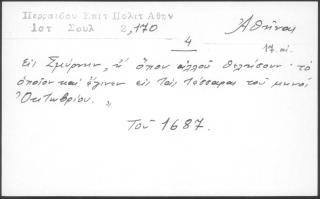 Περραιδου Επιτ Πολιτ Αθην
1στ Σουλ 2,170
Ἀθῆναι
4
17. αι.
Εἰς Σμύρνην, ἢ ὅπου ἀλλοῦ θελήσουν· τὸ
ὁποῖον καὶ ἔγινεν εἰς ταὶς τέσσαρας τοῦ μηνὸς
Ὀκτωβρίου.
Τοῦ 1687.